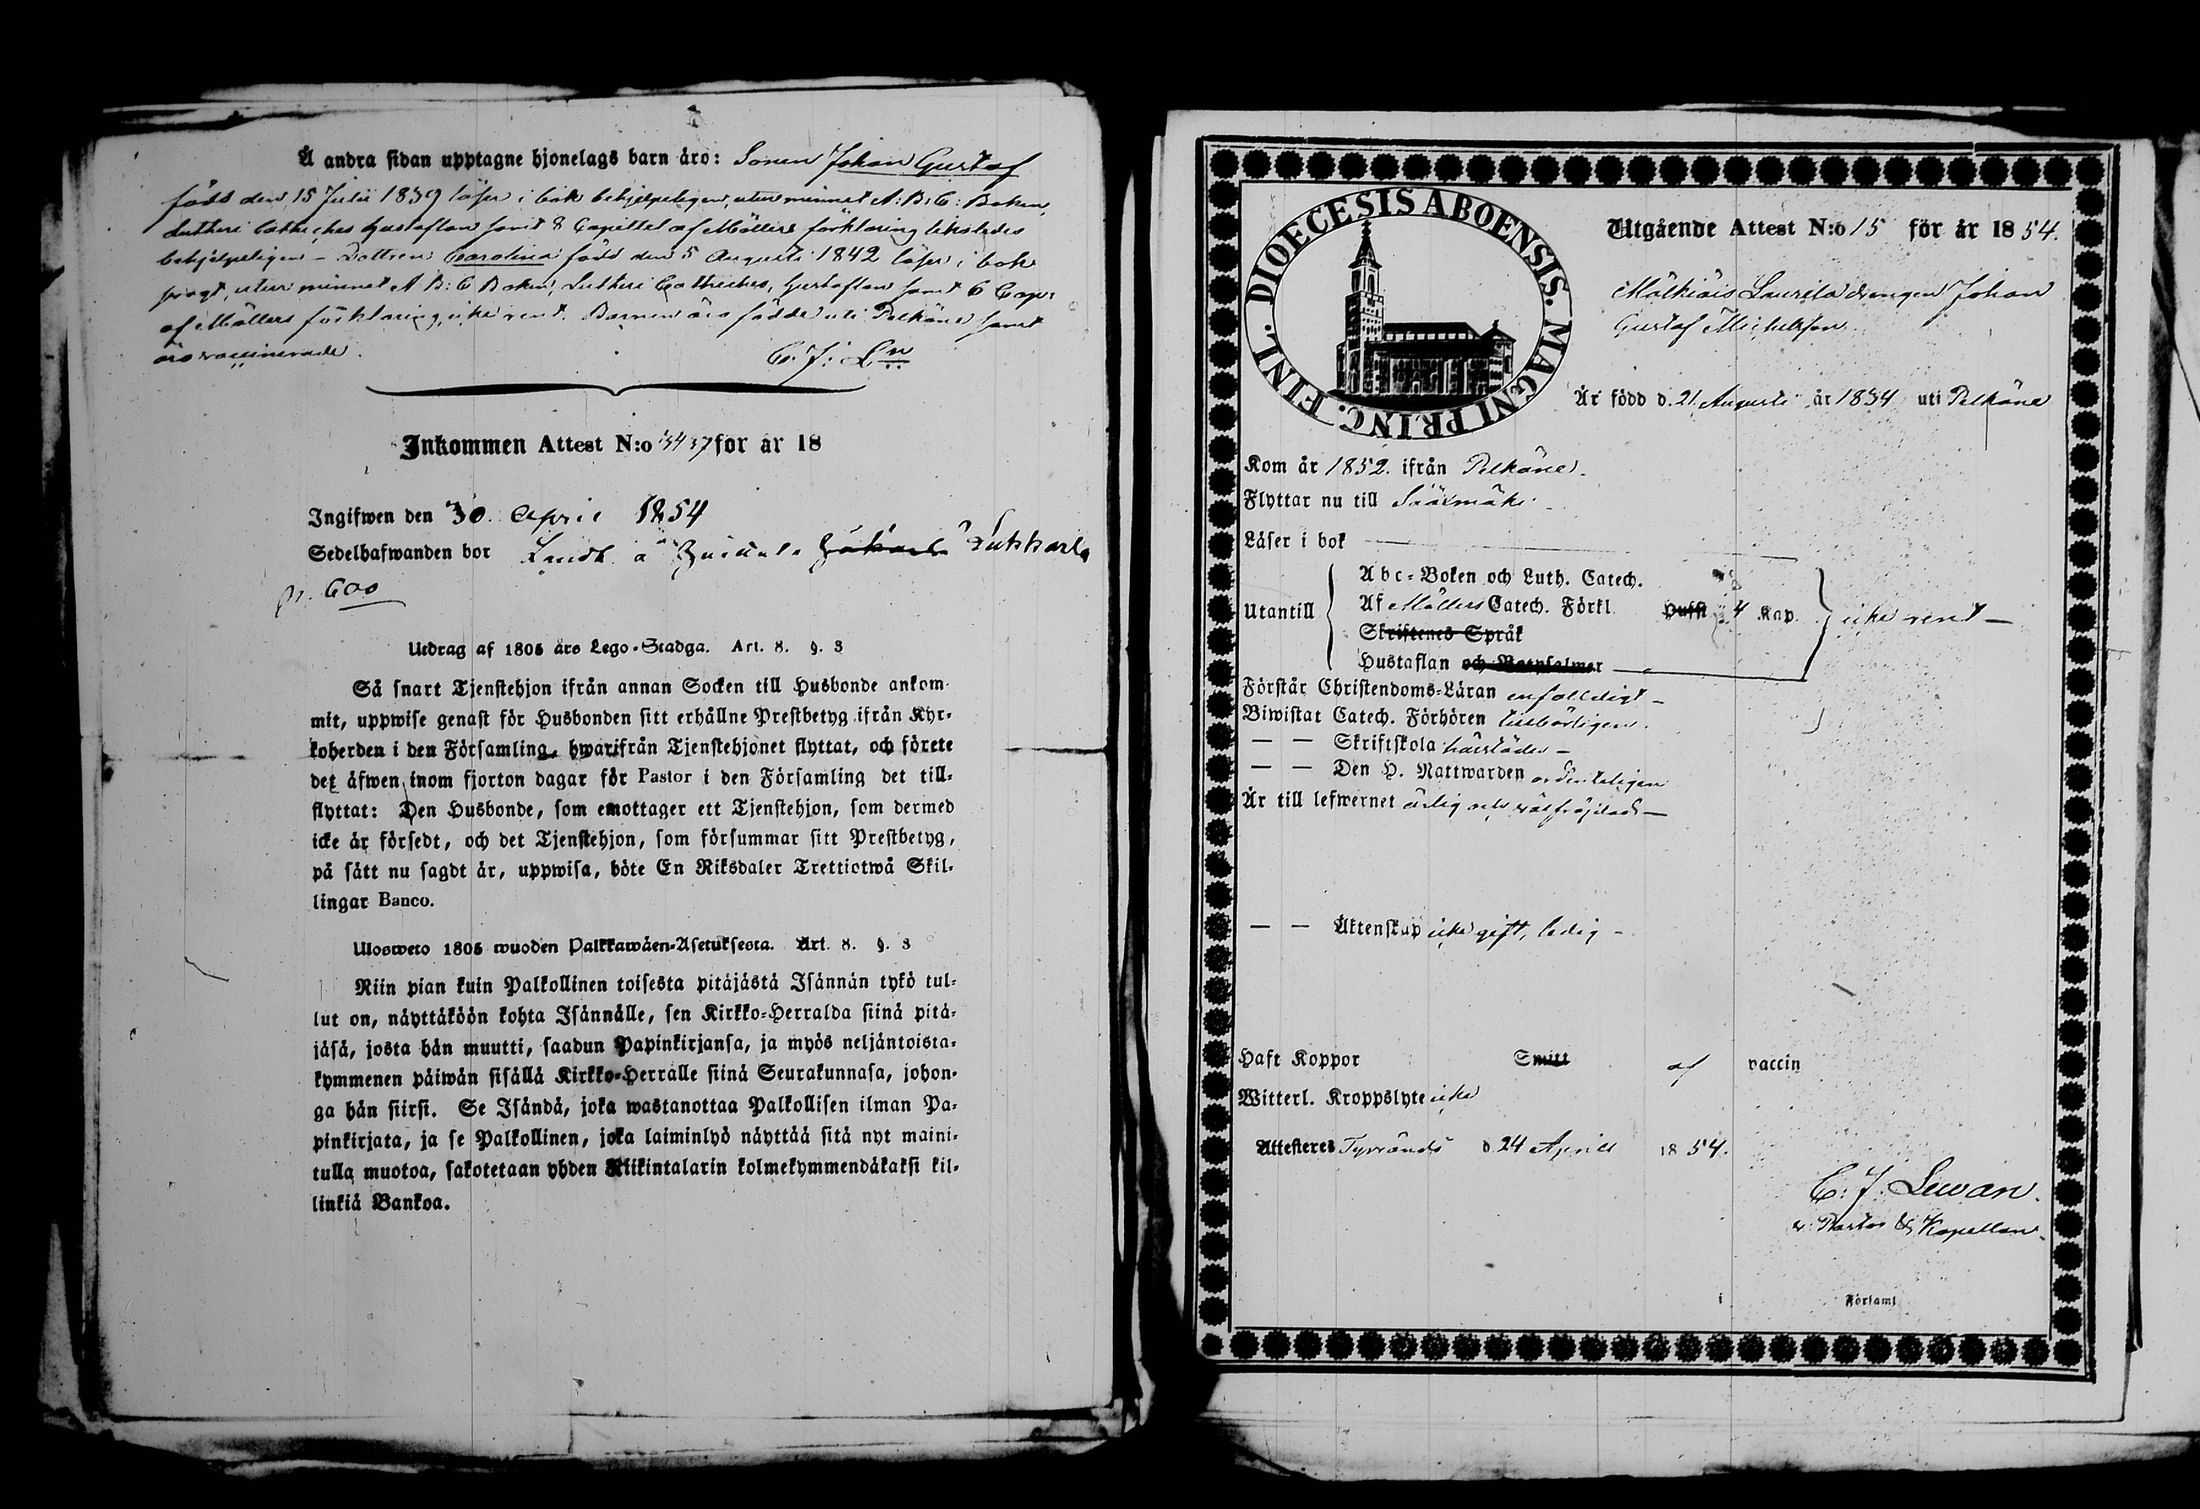 Å andra sidan upptagne hjonelags barn äro: Sonen Johan Gustaf
född den 15 Julii 1839 läser i bok behjelpeligen, utur minnet A:B:C: Boken,
Lutheri Catheches hustaflan samt 8 Capittel af Möllers förklaring likaledes
behjelpeligen – Dottren Carolina född den 5 Augusti 1842 läser i bok
svagt, utur minnet A B: C Boken, Lutheri Catheches, hustaflan samt 6 Cap:
af Möllers förklaring, icke rent. Barnen äro födde uti Pelkäne samt
äro vaccinerade.
C. J: Ln
Inkommen Attest N:o 37 för år 18
Ingifwen den 30 April 1854
Sedelhafwanden bor
p. 600
Utdrag af 1805 års Lego-Stadga. Art. 8. §. 3
Så snart Tjenstehjon ifrån annan Socken till Husbonde ankom-
mit, uppwise genast för Husbonden sitt erhållne Prestbetyg ifrån Kyr-
koherden i den Församling, hwarifrån Tjenstehjonet flyttat, och förete
det äfwen inom fjorton dagar för Pastor i den Församling det till-
flyttat: Den Husbonde, som emottager ett Tjenstehjon, som dermed
icke är försedt, och det Tjenstehjon, som försummar sitt Prestbetyg,
på sätt nu sagdt är, uppwisa, böte En Riksdaler Trettiotwå Skil-
lingar Banco.
Ulosweto 1805 wuoden Palkkawäen-Asetuksesta. Art. 8. §. 3
Niin pian kuin Palkollinen toisesta pitäjästä Isännän tykö tul-
lut on, näyttäköön kohta Isännälle, sen Kirkko-Herralda siinä pitä-
jäsä, josta hän muutti, saadun Papinkirjansa, ja myös neljäntoista-
kymmenen päiwän sisällä Kirkko-Herralle siinä Seurakunnasa, johon-
ga hän siirsi. Se Isändä, joka wastanottaa Palkollisen ilman Pa-
pinkirjata, ja se Palkollinen, joka laiminlyö näyttää sitä nyt maini-
tulla muotoa, sakotetaan yhden Riikintalarin kolmekymmendäkaksi kil-
linkiä Bankoa.
DIOECESIS ABOENSIS. MAGNI PRINC. FINL.
Utgående Attest N:o 15 för år 1854.
Mälkiäis Laurila drengen Johan
Gustaf Michelsson
Är född d. 21 Augusti år 1834 uti Pelkäne
Kom år 1852. ifrån Pelkäne.
Flyttar nu till Sääxmäki
Läser i bok
Abc-Boken och Luth. Catech.
Utantill Af Möllers Catech. Förkl. Hufst 4 Kap. icke rent –
Skriftenes Språk
Hustaflan och Botpsalmer
Förstår Christendoms-Läran enfaldigt –
Biwistat Catech. Förhören tillbörligen.
— — Skriftskola härstädes –
— — Den H. Nattwarden ordenteligen
Är till lefwernet ärlig och välfrejdad –
— — Äktenskap icke gift, ledig –
Haft Koppor Smitt af vaccin
Witterl. Kroppslyte icke
Attesteres Tyrväntö d. 24 April 1854.
C: J. Lewan.
v. Pastor & Kapellan.
i Församl